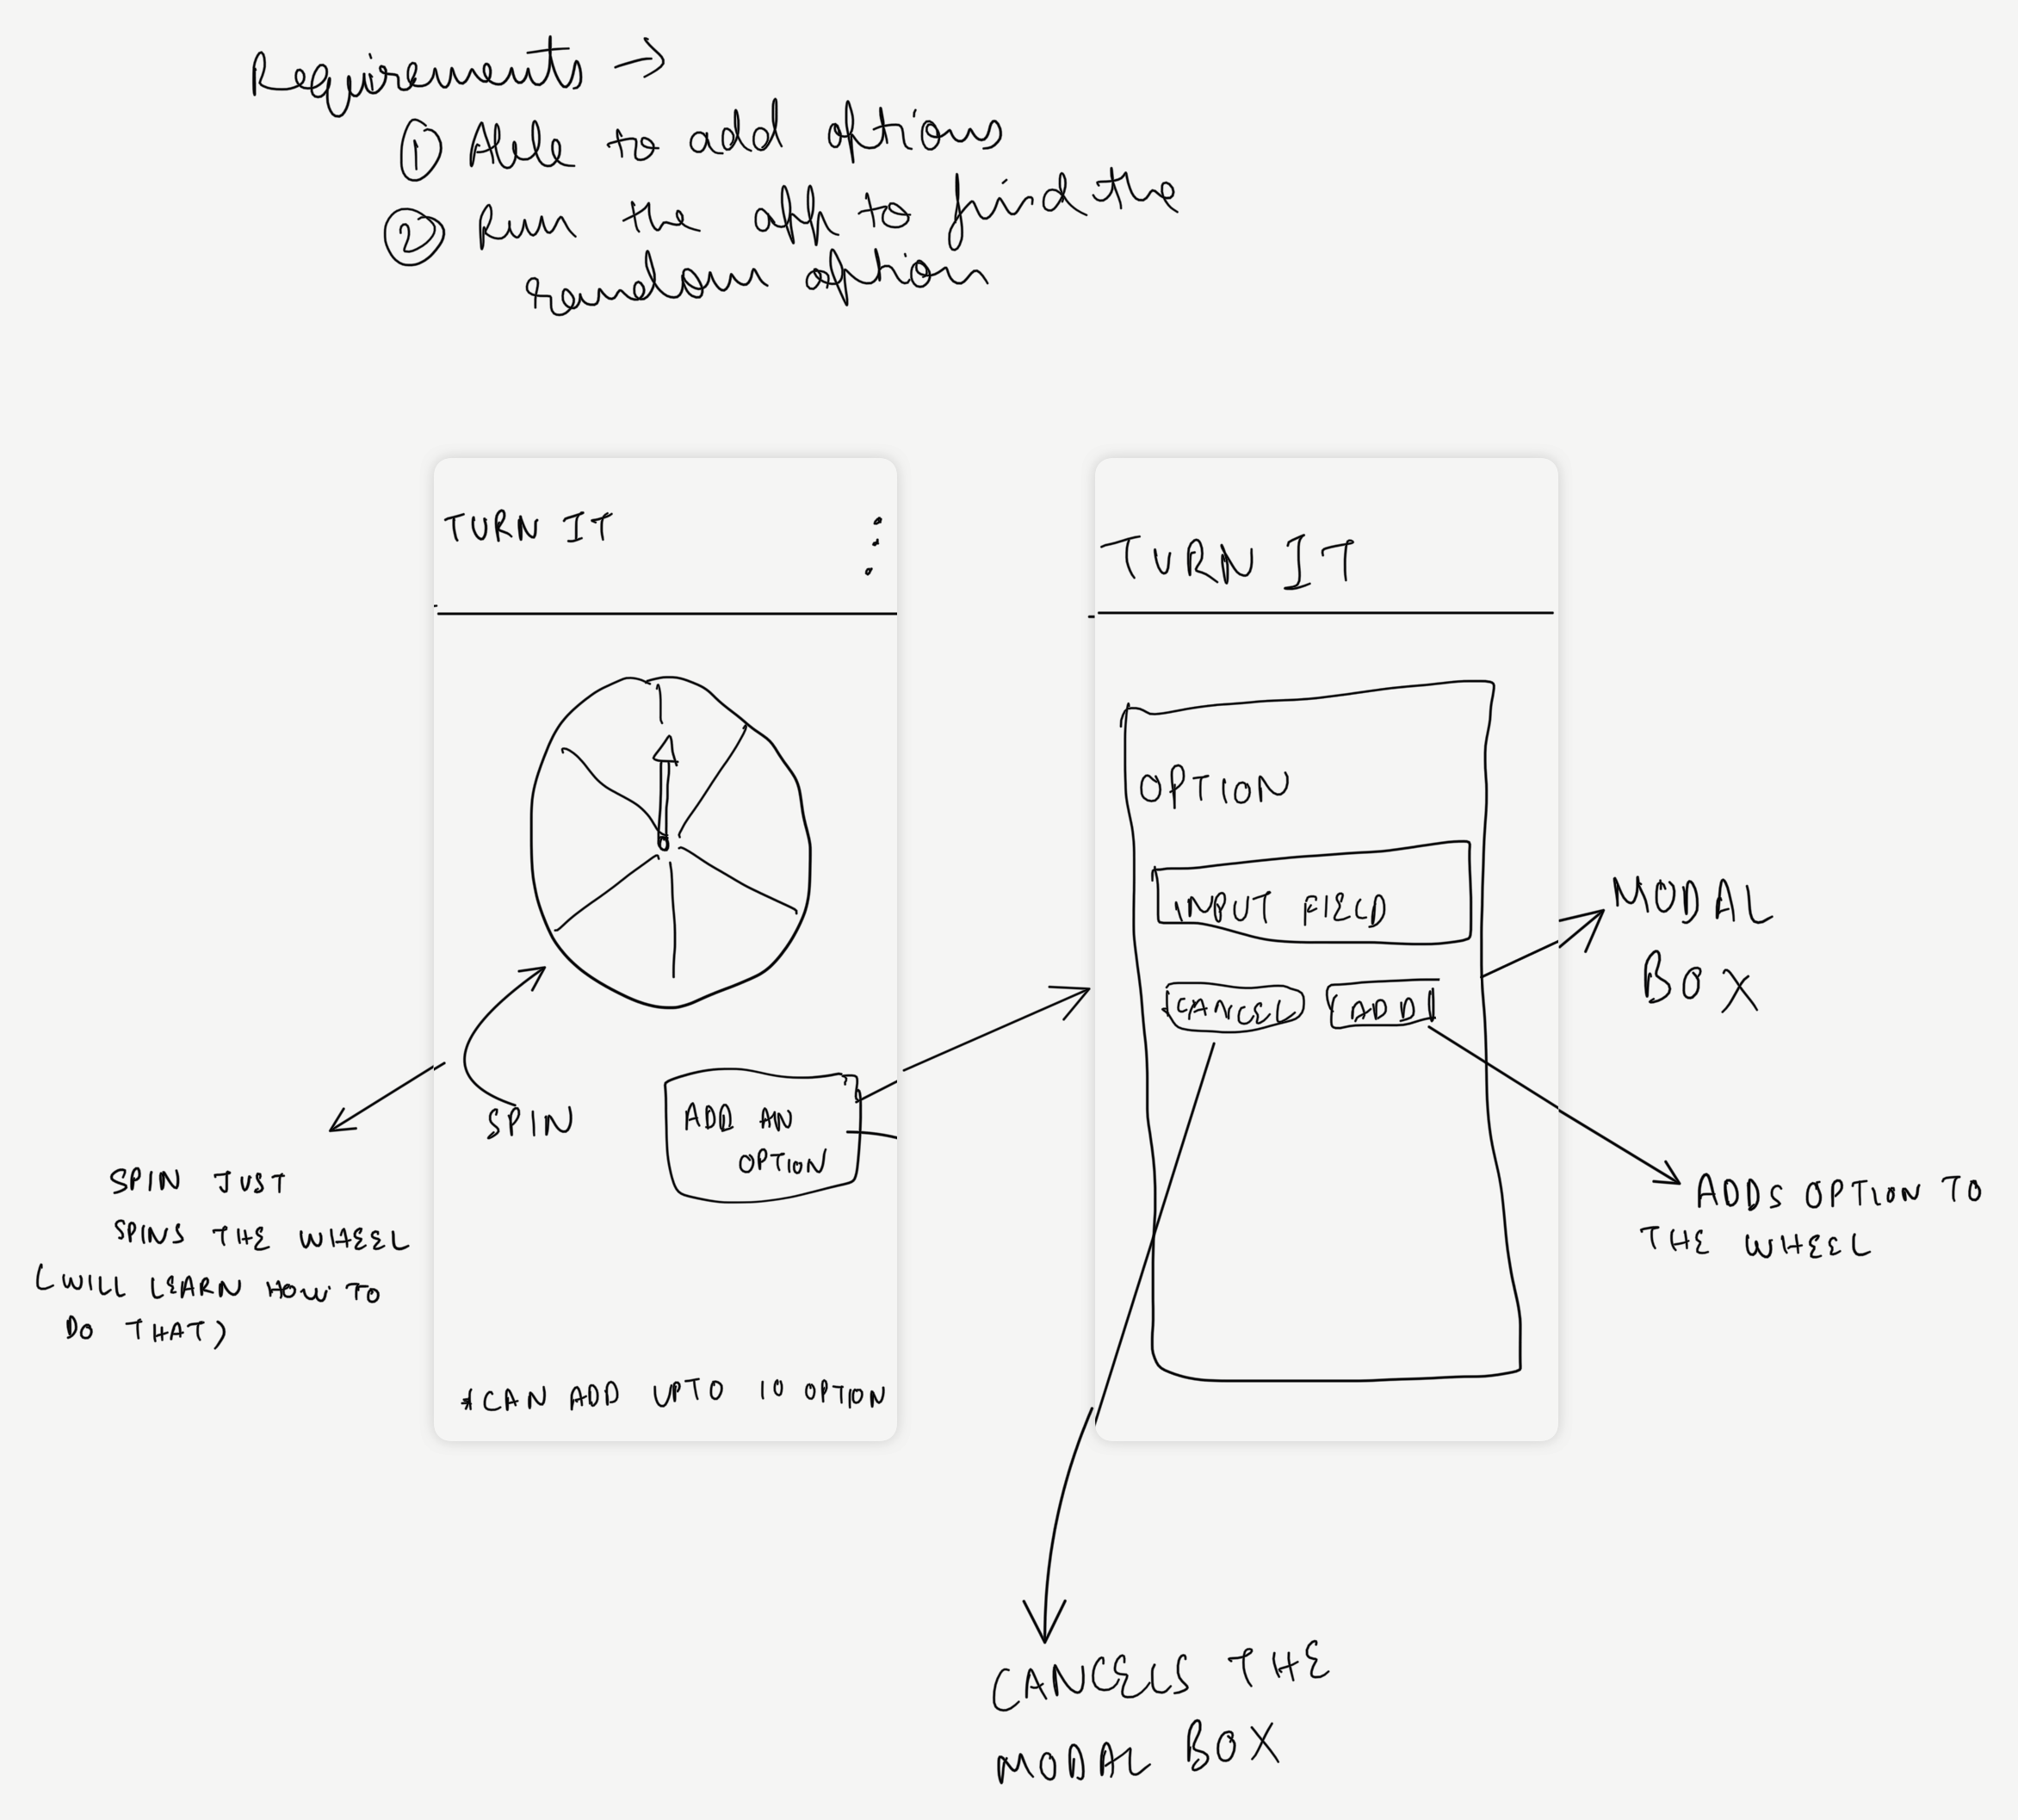 Requirements →
① Able to add options
② Run the app to find the
random option
TURN IT
SPIN
ADD AN
OPTION
*CAN ADD UPTO 10 OPTION
SPIN JUST
SPINS THE WHEEL
(WILL LEARN HOW TO
DO THAT)
TURN IT
OPTION
INPUT FIELD
CANCEL ADD
MODAL
BOX
ADDS OPTION TO
THE WHEEL
CANCELS THE
MODAL BOX